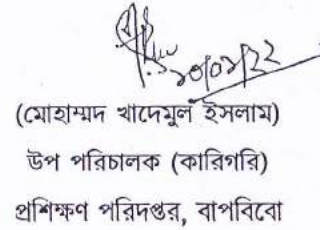 ১০/০১/২২
(মোহাম্মদ খাদেমুল ইসলাম)
উপ পরিচালক (কারিগরি)
প্রশিক্ষণ পরিদপ্তর, বাপবিবো